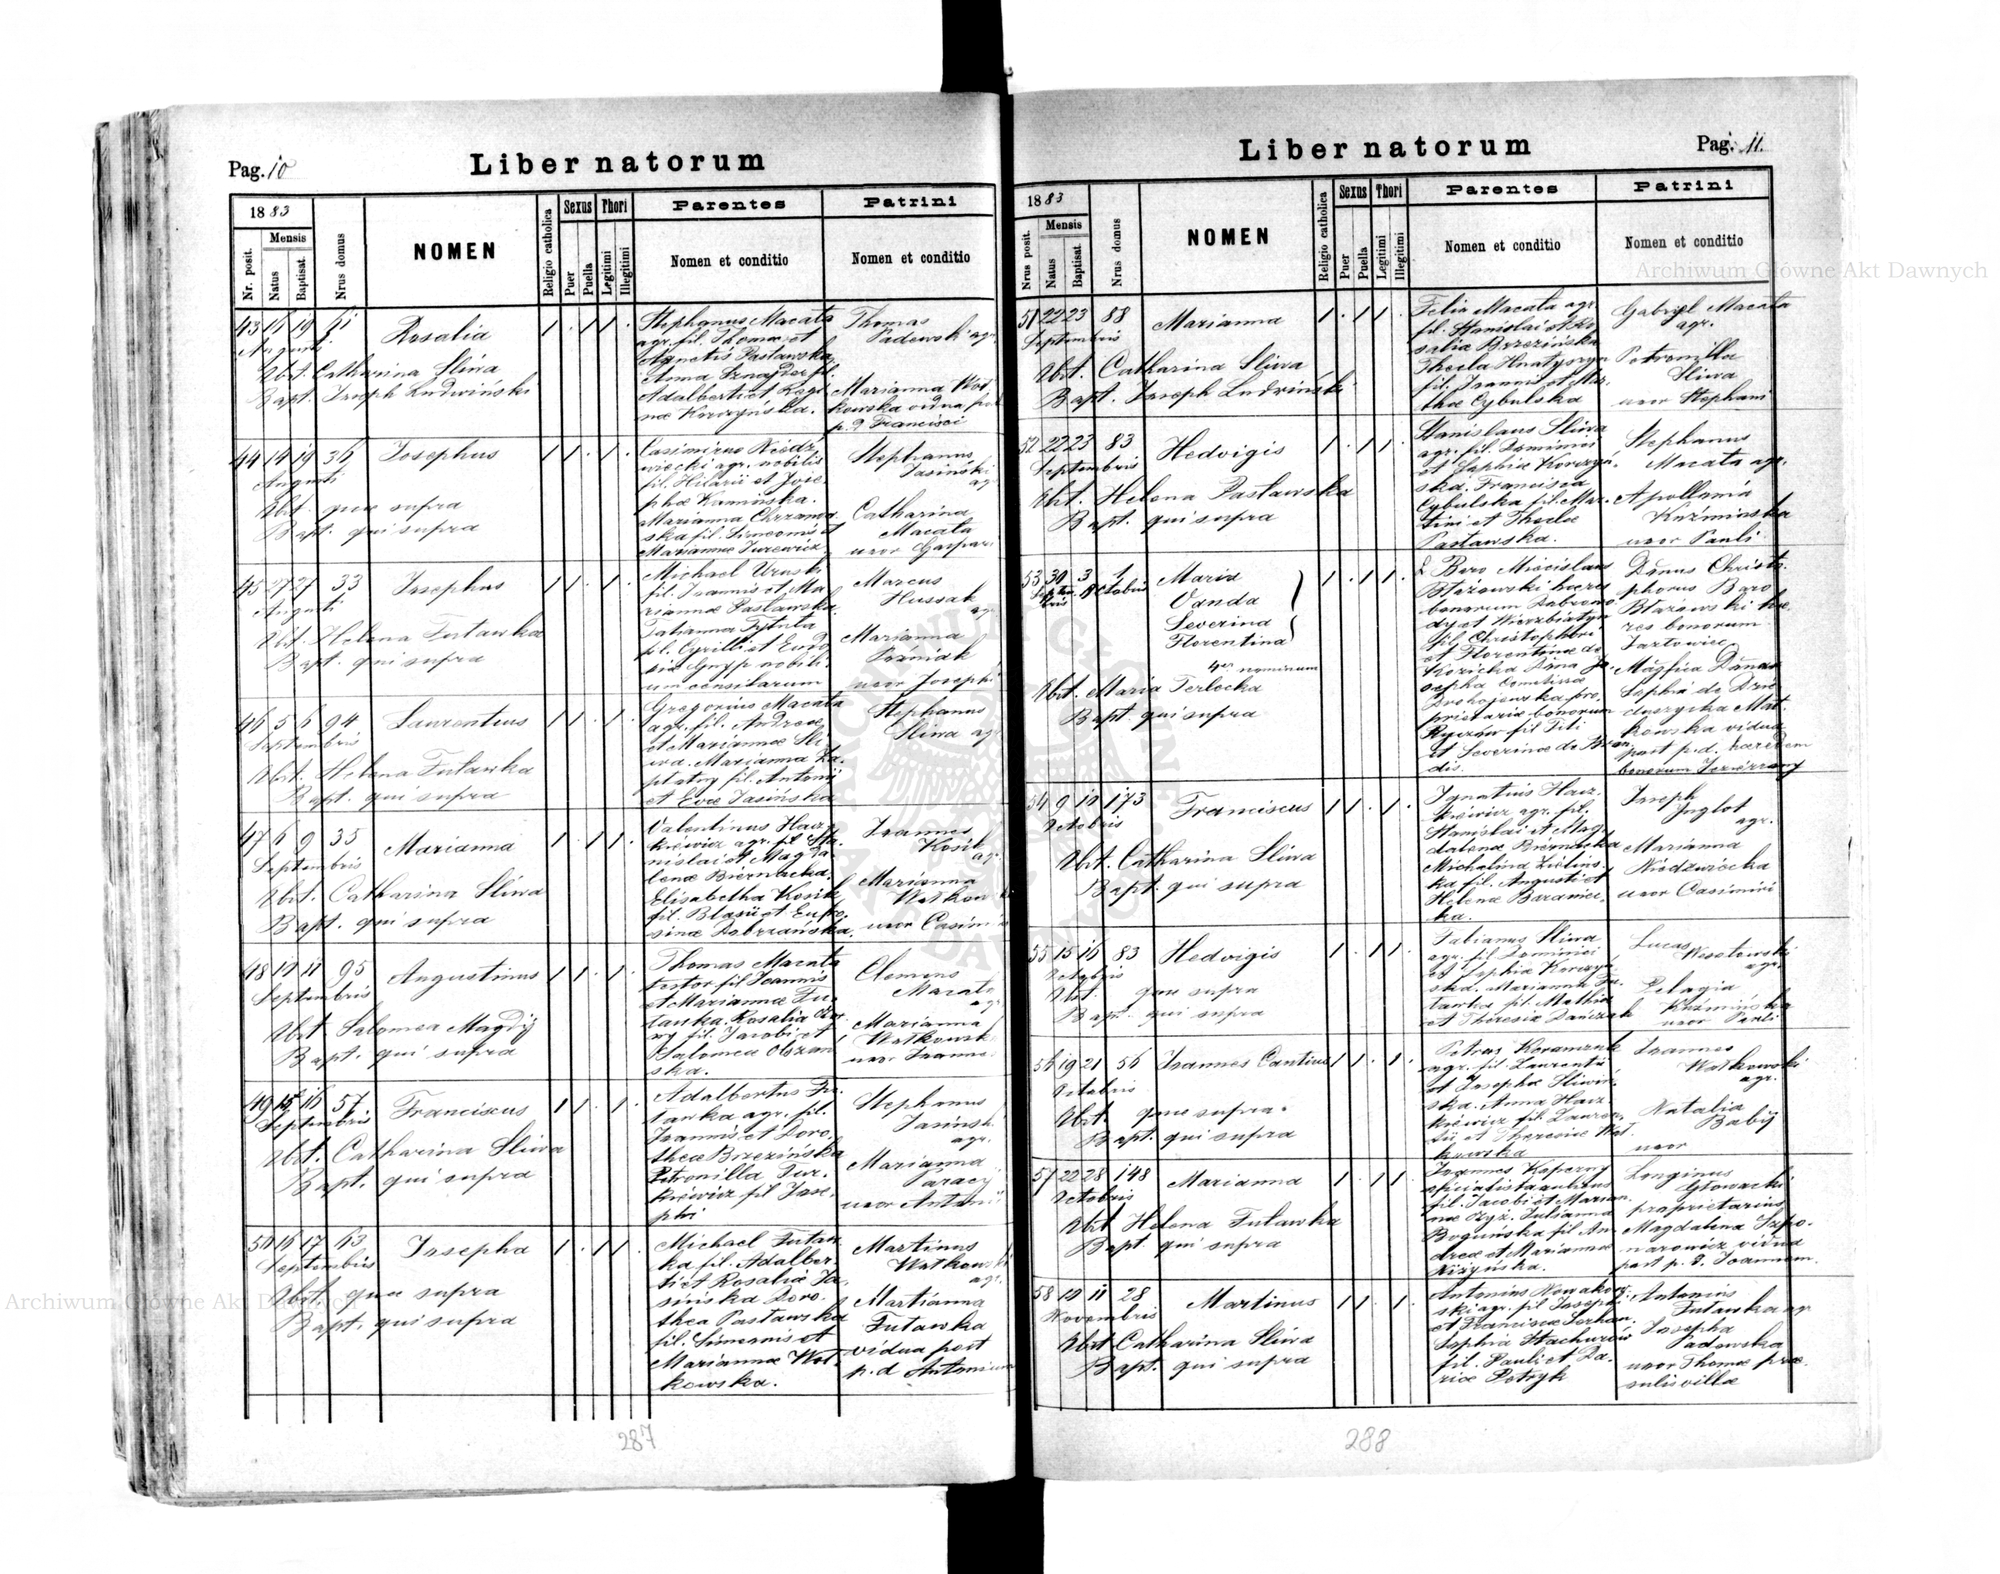 Pag. 10
Liber natorum
1883
Nr. posit.
Mensis
Natus
Baptisat.
Nrus domus
NOMEN
Religio catholica
Sexus
Puer
Puella
Thori
Legitimi
Illegitimi
Parentes
Nomen et conditio
Patrini
Nomen et conditio
43 19
Augusti
Rosalia
Obst. Catharina Sliwa
Bapt. Joseph Ludwiński
Stephanus Macata
agr. fil. Thomæ et
Agnetis Pastawska
Anna fil.
Adalberti et Regi
næ Korczyńska.
Thomas
agr.
Marianna Wot
kowska vidua post
p. d. Francisci
44 14 19 36
Augusti
Josephus
Obst. quæ supra
Bapt. qui supra
Casimirus Niedz
wiecki agr. nobilis
fil. Hilarii et Jose
phæ Kamińska.
Marianna Chrzanow
ska fil. Simeonis et
Mariannæ Jurewicz
Stephanus
Jasiński
agr.
Catharina
Macata
uxor Gaspari
45 27 27 33
Augusti
Josephus
Obst. Helena Futawka
Bapt. qui supra
Michael
fil. Joannis et Ma
riannæ Pastawska
Tatianna
fil. Cyrilli et Eudo
xiæ Gnyp nobili
um censitarum
Marcus
Hussak
agr.
Marianna
Pozniak
uxor Josephi
46 5 6 94
Septembris
Laurentius
Obst. Helena Futawka
Bapt. qui supra
Gregorius Macata
agr. fil. Andreæ
et Mariannæ Sli
wa. Marianna Za
ptatny fil. Antonii
et Evæ Jasińska
Stephanus
Sliwa agr.
47 6 9 35
Septembris
Marianna
Obst. Catharina Sliwa
Bapt. qui supra
Valentinus Harz
kiewicz agr. fil. Sta
nislai et Magda
lenæ Biernacka.
Elisabetha Kosik
fil. Blasii et Eufro
sinæ Dobrzańska.
Joannes
Kosik
agr.
Marianna
Wotkow
uxor Casimi
48 10 11 95
Septembris
Augustinus
Obst. Salomea Magdij
Bapt. qui supra
Thomas Macata
textor fil. Joannis
et Mariannæ Fu
tawka. Rosalia
fil. Jacobi et
Salomea Olszań
ska.
Clemens
Macata
agr.
Marianna
Wotkowska
uxor Joannis
49 15 16 57
Septembris
Franciscus
Obst. Catharina Sliwa
Bapt. qui supra
Adalbertus Fu
tawka agr. fil.
Joannis et Doro
theæ Brzezińska
Petronilla Jur
kiewicz fil. Jose
phi
Stephanus
Jasiński
agr.
Marianna
Paracy
uxor Antonii
50 16 17 63
Septembris
Josepha
Obst. quæ supra
Bapt. qui supra
Michael Futaw
ka fil. Adalber
ti et Rosaliæ Ja
sińska Doro
thea Pastawska
fil. Simeonis et
Mariannæ Wot
kowska.
Martinus
Wotkowski
agr.
Marianna
Futawka
vidua post
p. d Antonium
287
Pag. 11.
Liber natorum
1883
Nrus posit.
Mensis
Natus
Baptisat.
Nrus domus
NOMEN
Religio catholica
Sexus
Puer
Puella
Thori
Legitimi
Illegitimi
Parentes
Nomen et conditio
Patrini
Nomen et conditio
51 22 23 88
Septembris
Marianna
Obst. Catharina Sliwa
Bapt. Joseph Ludwiński
Felix Macata agr.
fil. Stanislai et Ro
saliæ Brzezińska
Thecla Hnatyszyn
fil. Joannis et Mar
thæ Cybulska
Gabryel Macata
agr.
Petronilla
Sliwa
uxor Stephani
52 22 23 83
Septembris
Hedvigis
Obst. Helena Pastawska
Bapt. qui supra
Stanislaus Sliwa
agr. fil. Dominici
et Sophiæ Korczyń
ska. Francisca
Cybulska fil. Mar
tini et Theclæ
Pastawska.
Stephanus
Macata agr.
Apollonia
Kuźmińska
uxor Pauli
53 30 3 1
Septembris Octobris
Maria
Vanda
Severina
Florentina
4or nominum
Obst. Maria Terlecka
Bapt. qui supra
Baro Miecislaus
Błażowski hæres
bonorum Dobrowo
dy et Wierzbiatyn
fil. Christophori
et Florentinæ de
Kozicka Dna Jo
sepha Comitissa
Drohojewska pro
prietaria bonorum
Ryczów fil Titi
et Severinæ de Bran
dis.
Dnus Christo
phorus Baro
Błażowski hæ
res bonorum
Jazłowiec
Magfica Dna
Sophia de Dzie
duszycka Mat
kowska vidua
post p. d. hæredem
bonorum
54 9 10 173
Octobris
Franciscus
Obst. Catharina Sliwa
Bapt. qui supra
Ignatius Harz
kiewicz agr. fil.
Stanislai et Mag
dalenæ Biernacka
Michalina Zielins
ka fil. Augusti et
Helenæ Baraniec
ka.
Joseph
Inglot
agr.
Marianna
Niedzwiecka
uxor Casimiri
55 15 16 83
Octobris
Hedvigis
Obst. quæ supra
Bapt. qui supra
Fabianus Sliwa
agr. fil. Dominici
et Sophiæ Korczyń
ska. Marianna Fu
tawka fil. Mathiæ
et Theresiæ Danczak
Lucas
Wesotowski
agr.
Pelagia
Kuźmińska
uxor Pauli
56 19 21 56
Octobris
Joannes Cantius
Obst. quæ supra.
Bapt. qui supra
Petrus
agr. fil. Laurentii
et Josephæ Sliwiń
ska. Anna Harz
kiewicz fil. Lauren
tii et Theresiæ Wot
kowska
Joannes
Wotkowski
agr.
Natalia
Babij
uxor
57 22 28 148
Octobris
Marianna
Obst Helena Futawka
Bapt. qui supra
Joannes Kaperny
fil. Jacobi et Marian
næ Julianna
Boguńska fil An
dreæ et Mariannæ
Niżyńska.
Longinus
Głowacki
proprietarius
Magdalena Szpo
narowicz vidua
post p. d. Joannem.
58 10 11 28
Novembris
Martinus
Obst Catharina Sliwa
Bapt. qui supra
Antonius Nowakow
ski agr. fil Josephi
et Franciscæ
Sophia Stachurów
fil. Pauli et Da
riæ Petryk
Antonius
Futawka agr
Josepha
Padowska
uxor Thomæ præ
sulis villæ
288
Archiwum Główne Akt Dawnych
Archiwum Główne Akt Dawnych
ARCHIWUM GŁÓWNE AKT DAWNYCH